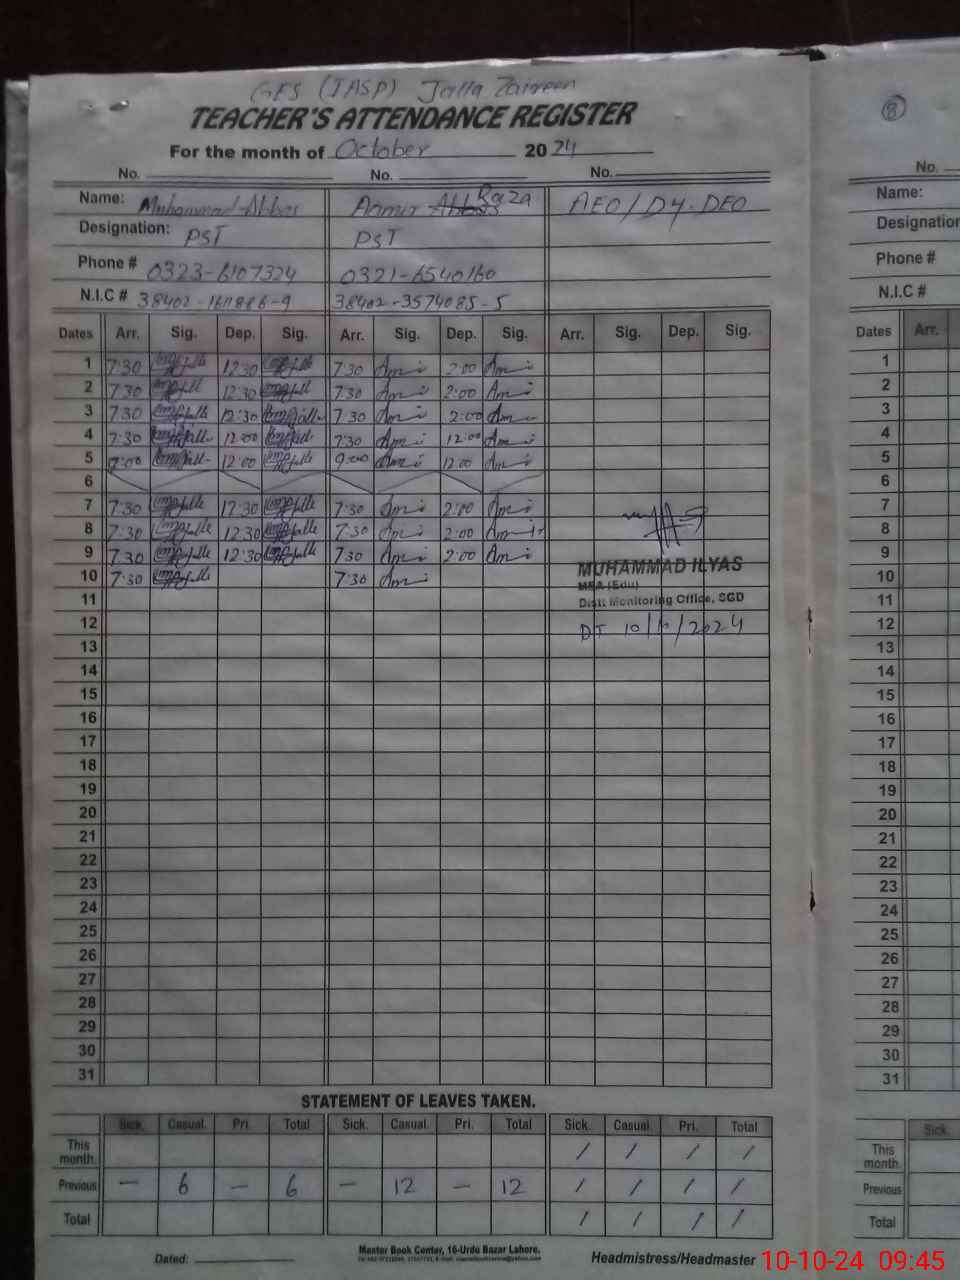 GES (IASP) Jalla Zaireen
TEACHER'S ATTENDANCE REGISTER
For the month of October 2024
No. No. No.
Name: Muhammad Abbas Aamir Abbas Raza AEO/DY.DEO
Designation: PST PST
Phone # 0323-6107324 0321-6540160
N.I.C # 38402-1611886-9 38402-3574085-5
Dates Arr. Sig. Dep. Sig. Arr. Sig. Dep. Sig. Arr. Sig. Dep. Sig.
1 7:30 12:30 7:30 Ami 2:00 Ami
2 7:30 12:30 7:30 Ami 2:00 Ami
3 7:30 12:30 7:30 Ami 2:00 Ami
4 7:30 12:00 7:30 Ami 12:00 Ami
5 9:00 12:00 9:00 Ami 12:00 Ami
6
7 7:30 12:30 7:30 Ami 2:00 Ami
8 7:30 12:30 7:30 Ami 2:00
9 7:30 12:30 7:30 Ami 2:00 Ami
MUHAMMAD ILYAS
MEA (Edu)
10 7:30 7:30 Ami
Distt Monitoring Office, SGD
11
DT 10/10/2024
12
13
14
15
16
17
18
19
20
21
22
23
24
25
26
27
28
29
30
31
STATEMENT OF LEAVES TAKEN.
Sick. Casual. Pri. Total Sick. Casual. Pri. Total Sick. Casual. Pri. Total
This month. / / / /
Previous — 6 — 6 — 12 — 12 / / / /
Total / / / /
Dated:
Master Book Center, 16-Urdu Bazar Lahore.
Headmistress/Headmaster
8
No.
Name:
Designation
Phone #
N.I.C #
Dates Arr.
1
2
3
4
5
6
7
8
9
10
11
12
13
14
15
16
17
18
19
20
21
22
23
24
25
26
27
28
29
30
31
Sick.
This month.
Previous
Total
10-10-24 09:45